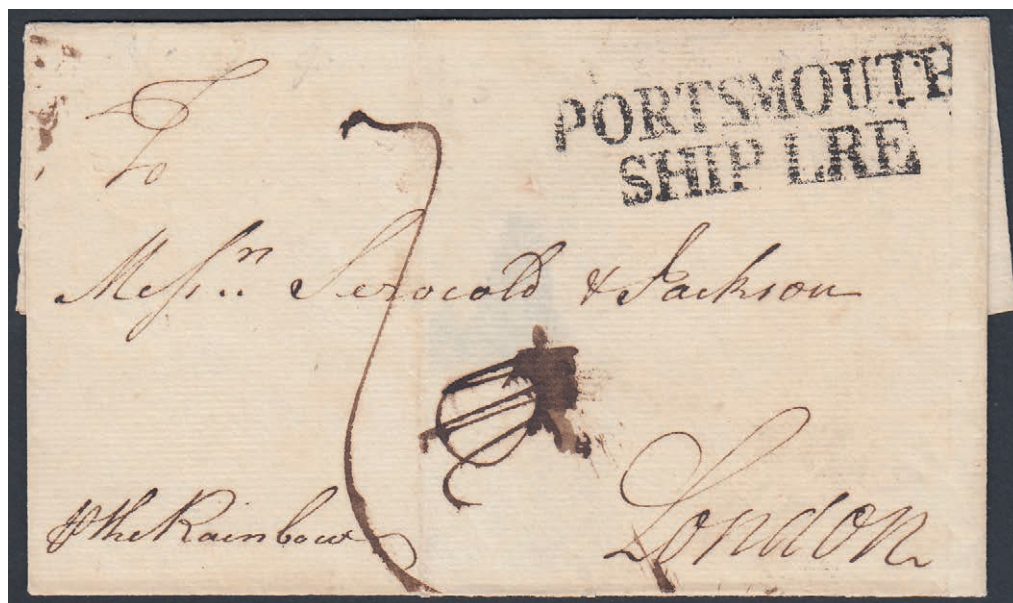 PORTSMOUTH
SHIP LRE
To
Messrs. Serocold & Jackson
London
⅌ the Rainbow
7